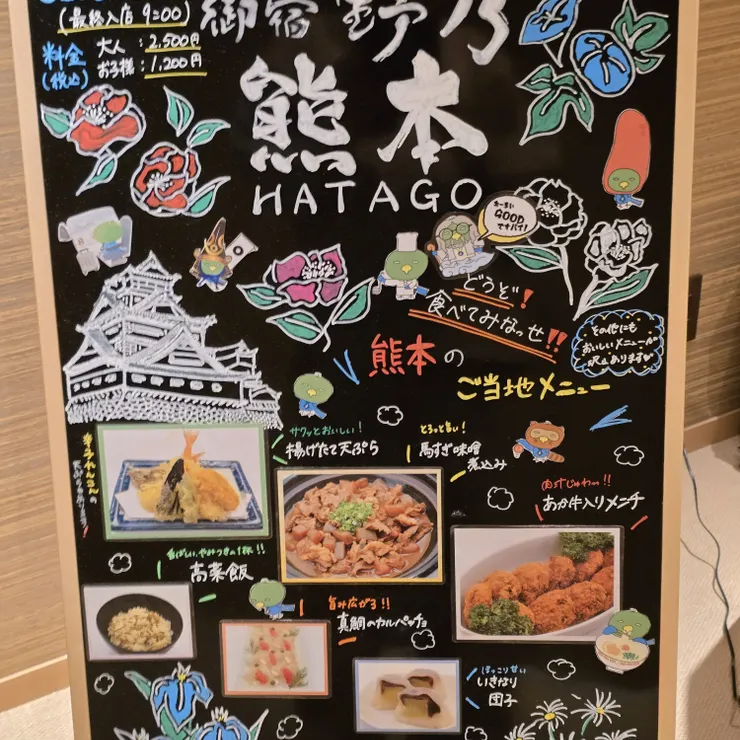 (最終入店 9:00)
料金
(税込)
大人 : 2,500円
お子様 : 1,200円
御宿 野乃
熊本
HATAGO
GOOD
ですバイ!
どうぞ!
食べてみなっせ!!
その他にも
おいしいメニューが
沢山ありますが
熊本の
ご当地メニュー
サクッとおいしい!
揚げたて天ぷら
とろっと旨い!
馬すじ味噌
煮込み
肉汁じゅわっ!!
あか牛入りメンチ
香ばしい、やみつきの1杯!!
高菜飯
旨み広がる!!
真鯛のカルパッチョ
ほっこり甘い
いきなり
団子